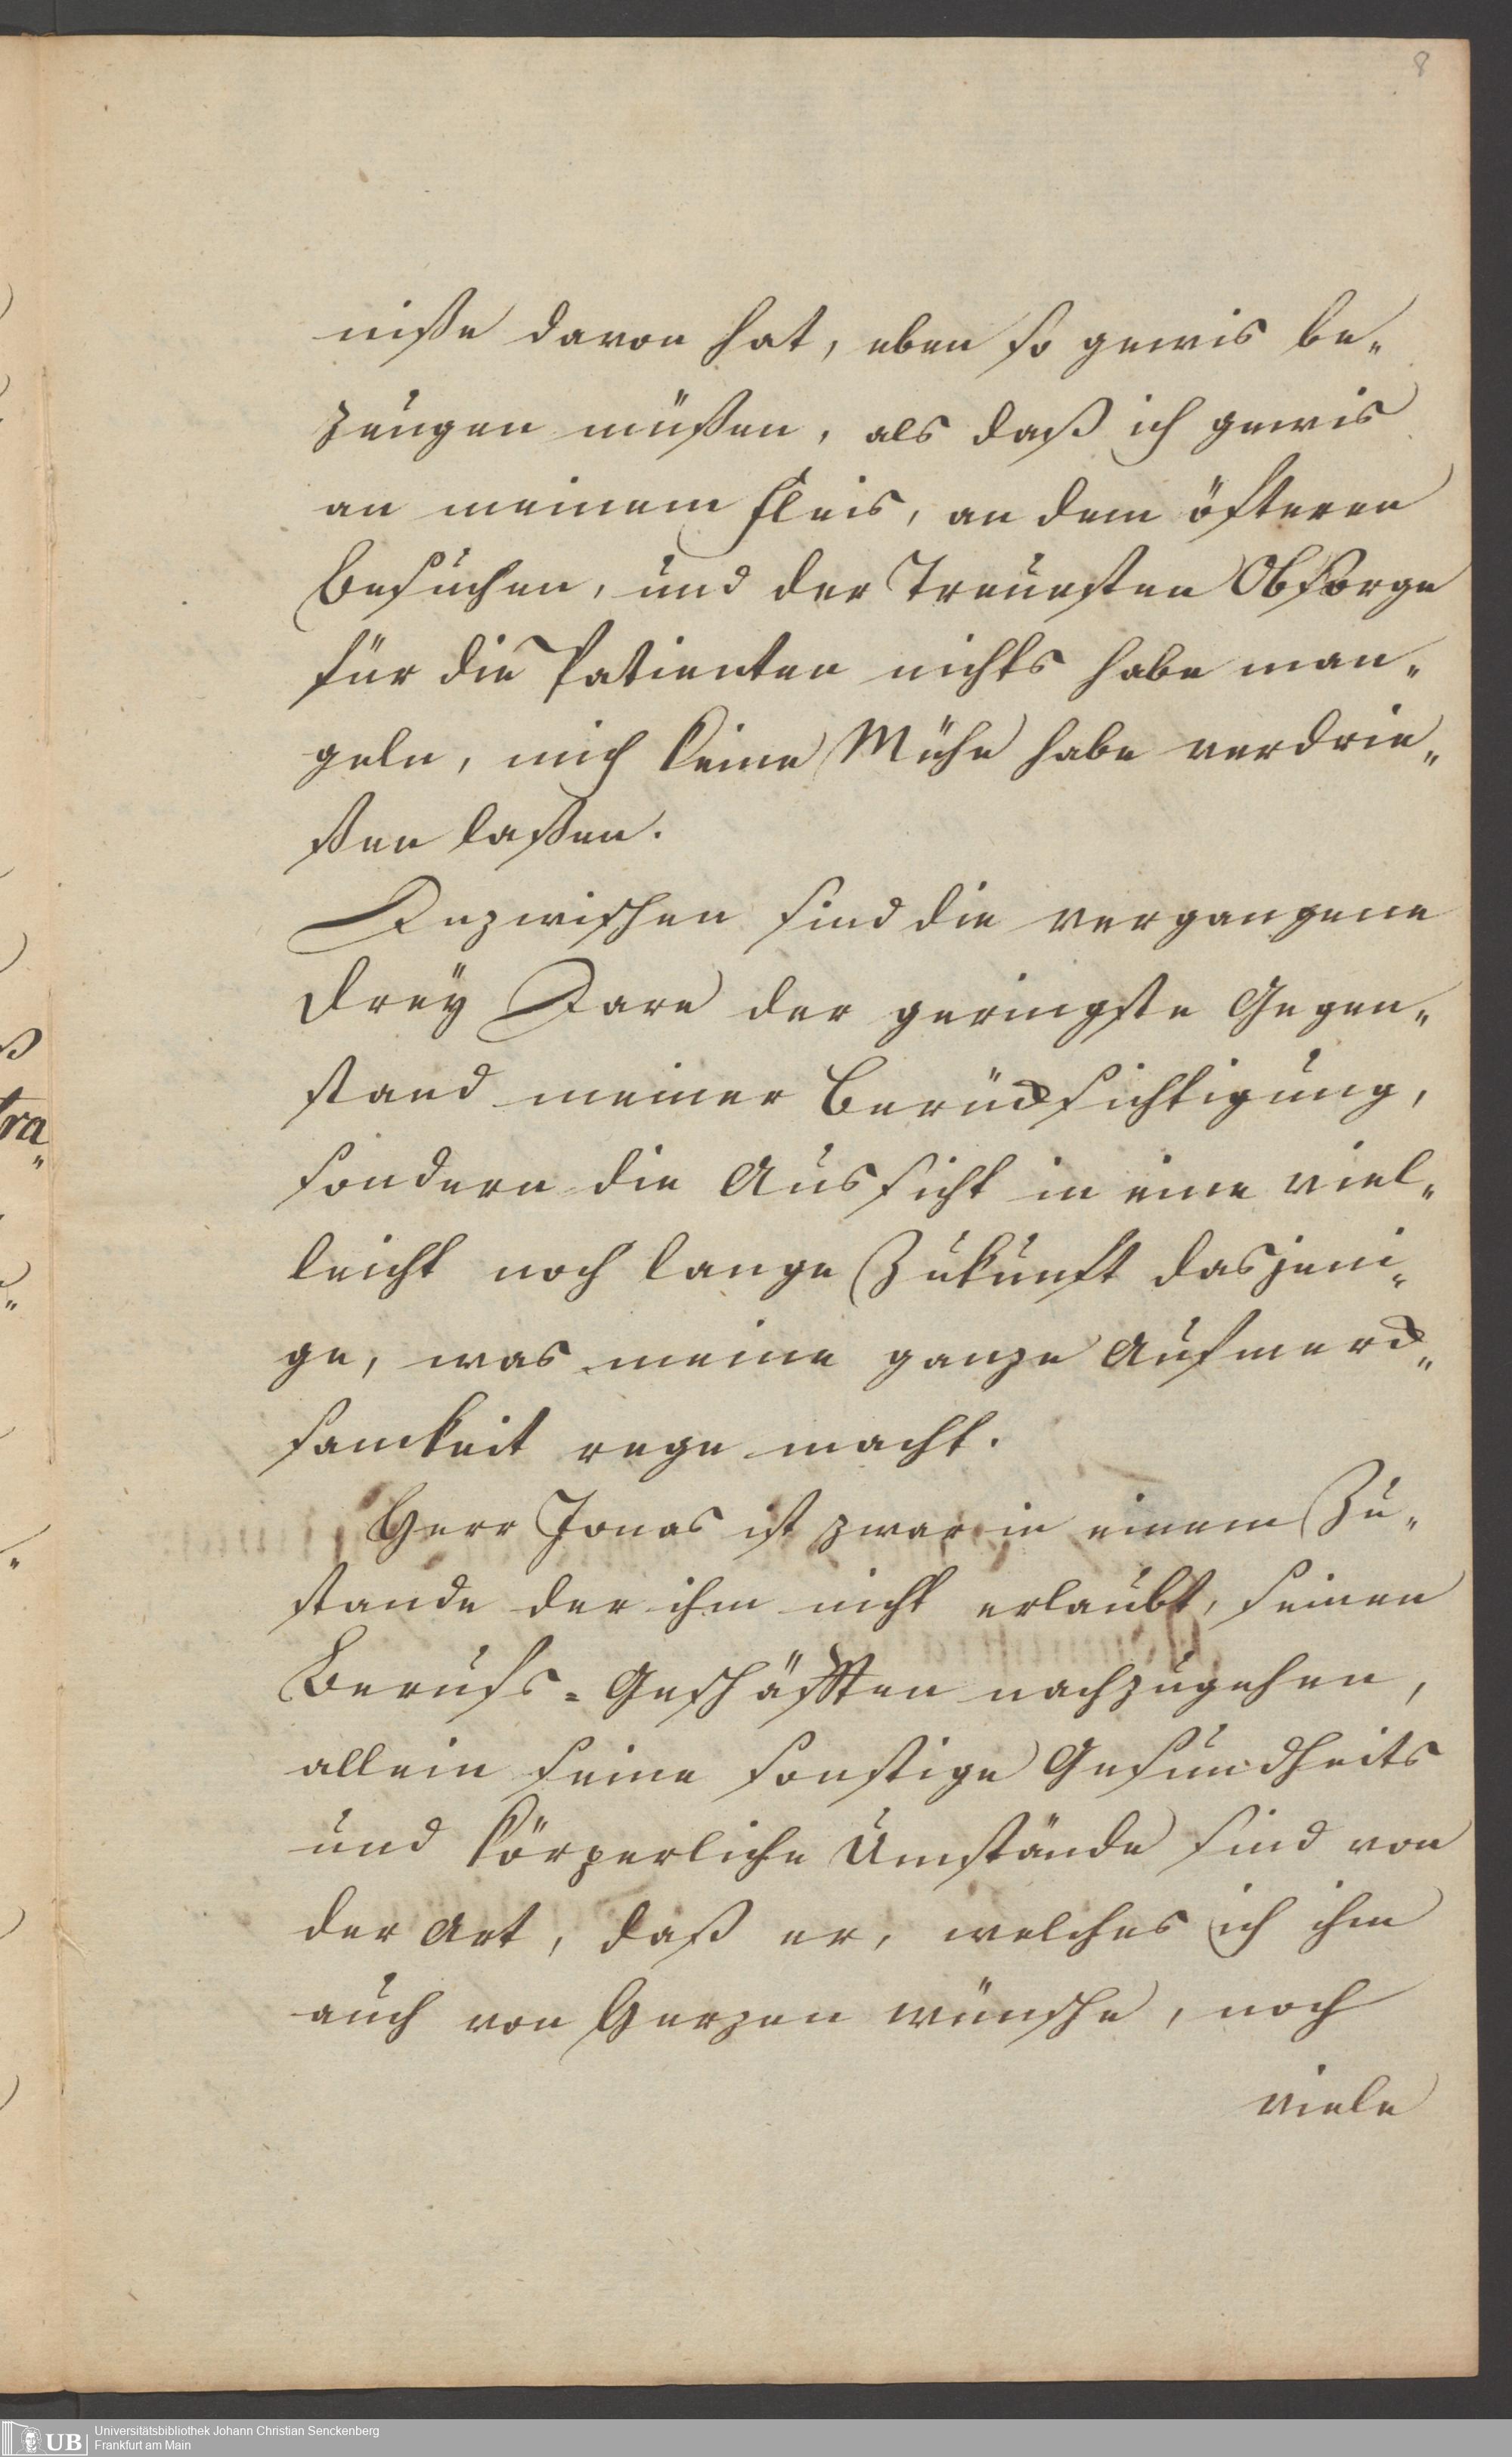 8
niße davon hat, eben so gewis be„
zeugen müßen, als daß ich gewis
an meinem Fleis, an dem öfteren
Besuchen, und der Treuesten Obsorge
für die Patienten nichts habe man„
geln, mich keine Mühe habe verdrie„
ßen laßen.
Inzwischen sind die vergangene
drey Jare der geringste Gegen„
stand meiner Berücksichtigung,
sondern die Aussicht in eine viel„
leicht noch lange Zukunft dasjeni„
ge, was meine ganze Aufmerck„
samkeit rege macht.
Herr Jonas ist zwar in einem Zu„
stande der ihm nicht erlaubt, seinen
Berufs=Geschäfften nachzugehen,
allein seine sonstige Gesundheits
und körperliche Umstände sind von
der Art, daß er, welches ich ihm
auch von Herzen wünsche, noch
viele
ß
tra„
UB Universitätsbibliothek Johann Christian Senckenberg
Frankfurt am Main